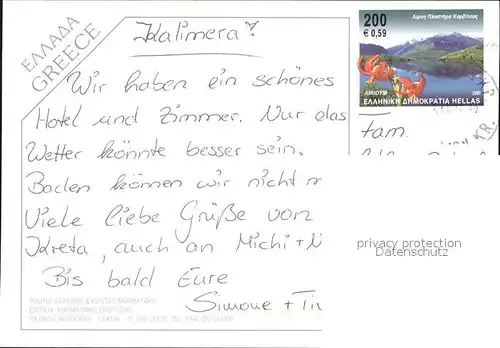 ΕΛΛΑΔΑ
GREECE
Kalimera!
Wir haben ein schönes
Hotel und Zimmer. Nur das
Wetter könnte besser sein.
Baden können wir nicht
Viele liebe Grüße von
Kreta, auch an Michi +
Bis bald Eure
Simone +
200
€ 0,59
Λίμνη Πλαστήρα Καρδίτσας
ΛΙΛΙΟΥΜ
ΕΛΛΗΝΙΚΗ ΔΗΜΟΚΡΑΤΙΑ HELLAS
Fam.
KR.
privacy protection
Datenschutz
PHOTO: STAVROS & KOSTAS MARMATAKIS
MARMATAKI BROTHERS